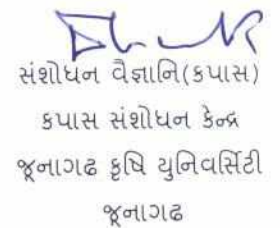 સંશોધન વૈજ્ઞાનિ(કપાસ)
કપાસ સંશોધન કેન્દ્ર
જૂનાગઢ કૃષિ યુનિવર્સિટી
જૂનાગઢ